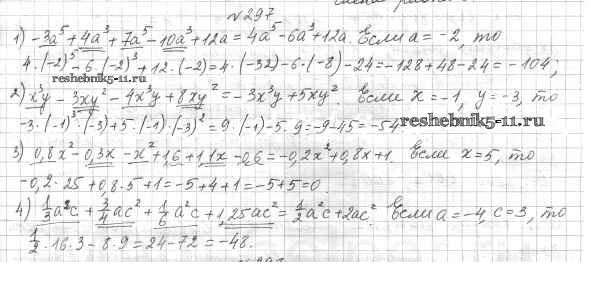 №297
1) -3a⁵ + 4a³ + 7a⁵ - 10a³ + 12a = 4a⁵ - 6a³ + 12a. Если a = -2, то
4·(-2)⁵ - 6·(-2)³ + 12·(-2) = 4·(-32) - 6·(-8) - 24 = -128 + 48 - 24 = -104;
reshebnik5-11.ru
2) x³y - 3xy² - 4x³y + 8xy² = -3x³y + 5xy². Если x = -1, y = -3, то
-3·(-1)³·(-3) + 5·(-1)·(-3)² = 9·(-1) - 5·9 = -9 - 45 = -54.
reshebnik5-11.ru
3) 0,8x² - 0,3x - x² + 1,6 + 1,1x - 0,6 = -0,2x² + 0,8x + 1. Если x = 5, то
-0,2·25 + 0,8·5 + 1 = -5 + 4 + 1 = -5 + 5 = 0.
4) 1/3a²c + 3/4ac² + 1/6a²c + 1,25ac² = 1/2a²c + 2ac². Если a = -4, c = 3, то
1/2·16·3 - 8·9 = 24 - 72 = -48.